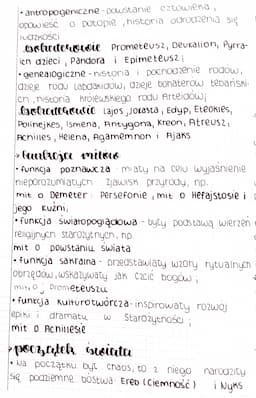 • antropogeniczne - powstanie człowieka,
opowieść o potopie, historia odrodzenia się
ludzkości
bohaterowie Prometeusz, Deukalion, Pyrra-
ich dzieci, Pandora i Epimeteusz;
• genealogiczne - historia i pochodzenie rodów,
dzieje rodu Labdakidów, dzieje bohaterów tebański-
ch, historia królewskiego rodu Atrejdów;
bohaterowie Lajos, Jokasta, Edyp, Eteokles,
Polinejkes, Ismena, Antygona, Kreon, Atreusz,
Achilles, Helena, Agamemnon i Ajaks
→ funkcje mitów
• funkcja poznawcza - miały na celu wyjaśnienie
niezrozumiałych zjawisk przyrody, np.
mit o Demeter i Persefonie, mit o Hefajstosie i
jego kuźni;
• funkcja światopoglądowa - były podstawą wierzeń
religijnych starożytnych, np.
mit o powstaniu świata
• funkcja sakralna - przedstawiały wzory rytualnych
obrzędów, wskazywały jak czcić bogów;
mit o Prometeuszu
• funkcja kulturotwórcza - inspirowały rozwój
epiki i dramatu w starożytności;
mit o Achillesie
→ początek świata
• Na początku był chaos, to z niego narodziły
się podziemne bóstwa: Ereb (Ciemność) i Nyks